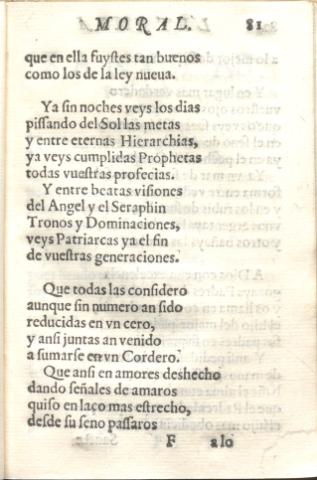 MORAL. 81
que en ella fuystes tan buenos
como los de la ley nueua.
Ya sin noches veys los dias
pissando del Sol las metas
y entre eternas Hierarchias,
ya veys cumplidas Prophetas
todas vuestras profecias.
Y entre beatas visiones
del Angel y el Seraphin
Tronos y Dominaciones,
veys Patriarcas ya el fin
de vuestras generaciones.
Que todas las considero
aunque sin numero an sido
reducidas en vn cero,
y ansi juntas an venido
a sumarse en vn Cordero.
Que ansi en amores deshecho
dando señales de amaros
quiso en laço mas estrecho,
desde su seno passaros
F alo